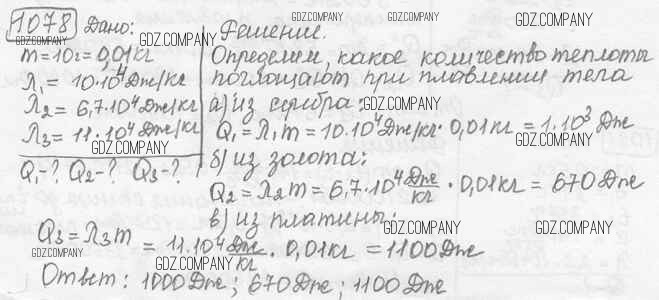 1078 Дано: Решение.
m = 10г = 0,01кг
λ₁ = 10·10⁴ Дж/кг
λ₂ = 6,7·10⁴ Дж/кг
λ₃ = 11·10⁴ Дж/кг
Q₁-? Q₂-? Q₃-?
Определим, какое количество теплоты
поглощают при плавлении тела
а) из серебра:
Q₁ = λ₁m = 10·10⁴ Дж/кг · 0,01кг = 1·10³ Дж
б) из золота:
Q₂ = λ₂m = 6,7·10⁴ Дж/кг · 0,01кг = 670 Дж
в) из платины:
Q₃ = λ₃m = 11·10⁴ Дж/кг · 0,01кг = 1100 Дж
Ответ: 1000 Дж; 670 Дж; 1100 Дж
GDZ.COMPANY
GDZ.COMPANY
GDZ.COMPANY
GDZ.COMPANY
GDZ.COMPANY
GDZ.COMPANY
GDZ.COMPANY
GDZ.COMPANY
GDZ.COMPANY
GDZ.COMPANY
GDZ.COMPANY
GDZ.COMPANY
GDZ.COMPANY